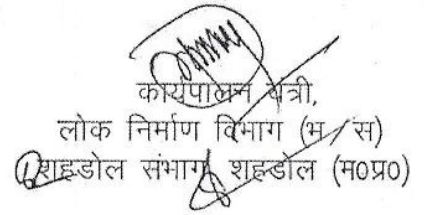 कार्यपालन यंत्री,
लोक निर्माण विभाग (भ/स)
शहडोल संभाग शहडोल (म0प्र0)